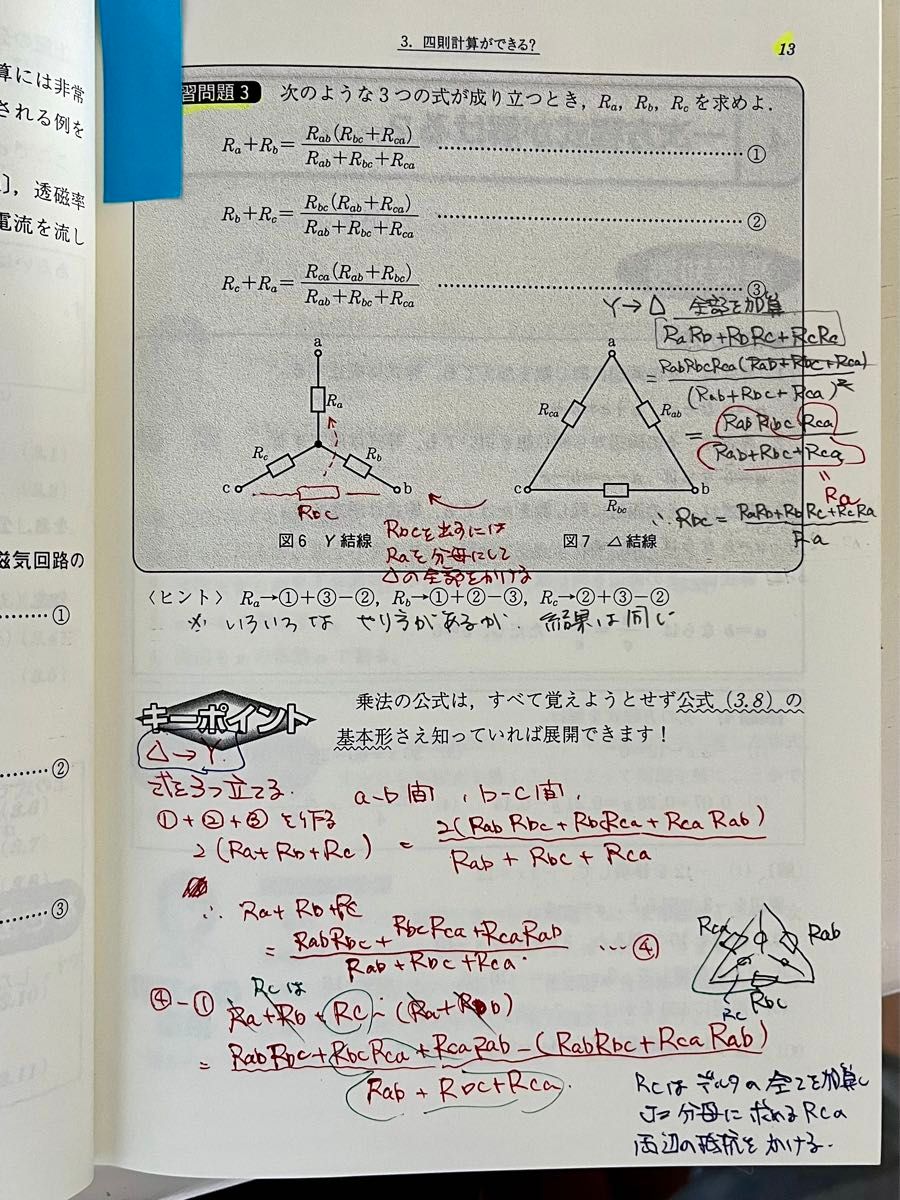 3. 四則計算ができる?
13
算には非常
される例を
透磁率
電流を流し
磁気回路の
①
②
③
習問題3 次のような3つの式が成り立つとき，Ra，Rb，Rcを求めよ．
Ra+Rb=Rab(Rbc+Rca)/Rab+Rbc+Rca ………①
Rb+Rc=Rbc(Rab+Rca)/Rab+Rbc+Rca ………②
Rc+Ra=Rca(Rab+Rbc)/Rab+Rbc+Rca ………③
Y→△ 全部を加算
RaRb+RbRc+RcRa
=RabRbcRca(Rab+Rbc+Rca)/(Rab+Rbc+Rca)²
=RabRbcRca/Rab+Rbc+Rca
=
Ra
∴Rbc=RaRb+RbRc+RcRa/Ra
a
Ra
Rc
Rb
c
b
Rbc
a
Rca
Rab
c
b
Rbc
Rbcを出すには
Raを分母にして
△の全部をかける
図6 Y結線
図7 △結線
〈ヒント〉 Ra→①+③−②，Rb→①+②−③，Rc→②+③−②
※ いろいろな やり方があるが 結果は同じ
キーポイント
乗法の公式は，すべて覚えようとせず公式 (3.8) の
基本形さえ知っていれば展開できます！
△→Y.
式を3つ立てる.
a-b間, b-c間,
①+②+③ を作る
2(Ra+Rb+Rc) = 2(RabRbc+RbcRca+RcaRab)/Rab+Rbc+Rca
∴ Ra+Rb+Rc
=RabRbc+RbcRca+RcaRab/Rab+Rbc+Rca …④
Rca
Rab
Rbc
Rc
Rcは
④-① Ra+Rb+Rc-(Ra+Rb)
=RabRbc+RbcRca+RcaRab-(RabRbc+RcaRab)/Rab+Rbc+Rca
Rcは デルタの全てを加算し
分母に 求める Rca
両辺の抵抗をかける.